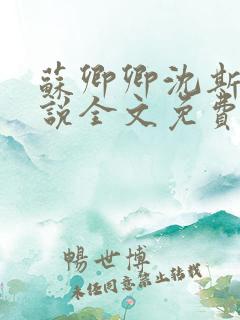 蘇卿卿沈斯
說全文免費
暢世博
未經同意禁止轉載